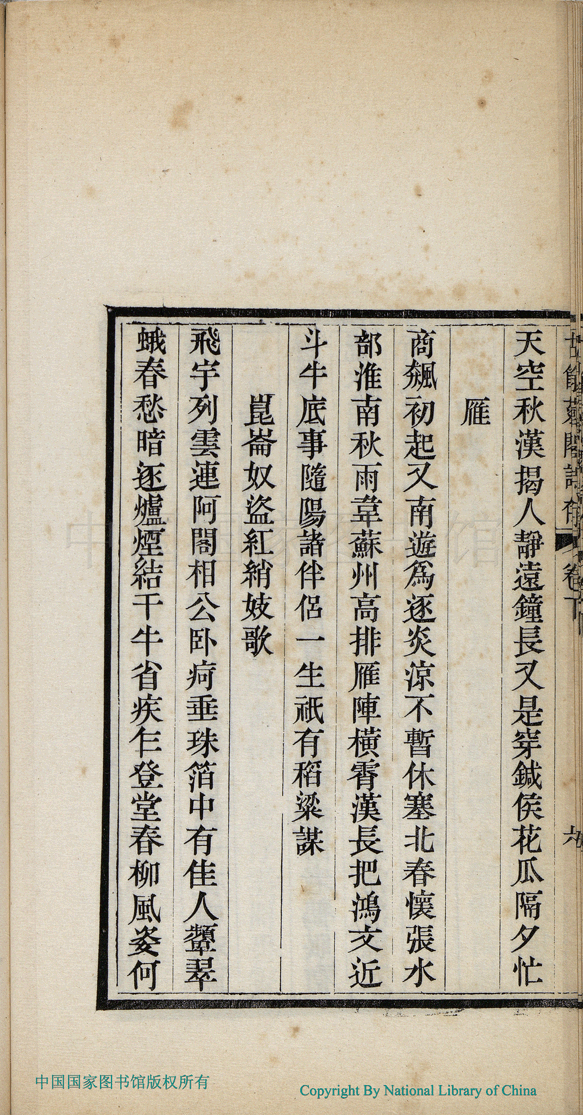 天空秋漢揭人靜遠鐘長又是穿鍼侯花瓜隔夕忙
雁
商飆初起又南遊爲逐炎涼不暫休塞北春懷張水
部淮南秋雨韋蘇州高排雁陣橫霄漢長把鴻文近
斗牛底事隨陽諸伴侶一生祇有稻粱謀
崑崙奴盜紅綃妓歌
飛宇列雲連阿閣相公卧疴垂珠箔中有佳人顰翠
蛾春愁暗逐爐煙結千牛省疾乍登堂春柳風姿何
中国国家图书馆
中国国家图书馆版权所有
Copyright By National Library of China